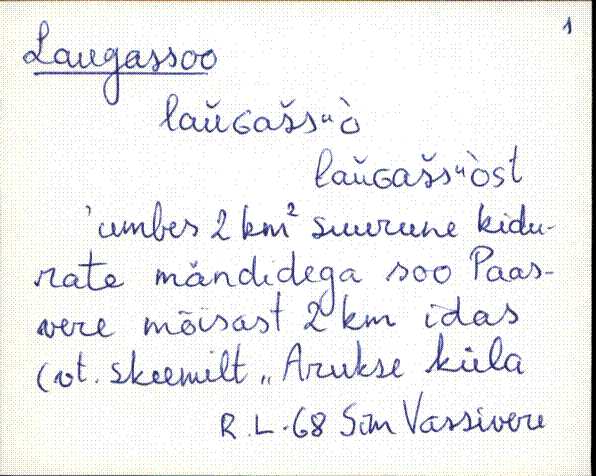 1
Laugassoo
lau̬ɢašsᵘò
lau̬ɢašsᵘòst
'umbes 2 km² suurune kidu-
rate mändidega soo Paas-
vere mõisast 2 km idas
(vt. skeemilt „Arukse küla
R. L.-68 Sim Vassivere